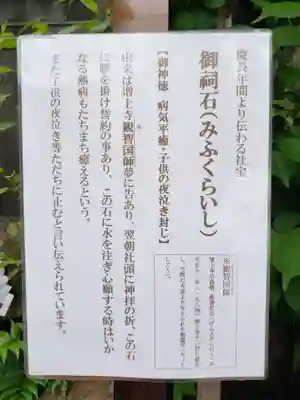 慶長年間より伝わる社宝
御祠石(みふくらいし)
【御神徳 病気平癒・子供の夜泣き封じ】
由来は増上寺観智国師夢に告あり、翌朝社頭に神拝の折、この石
に腰を掛け誓約の事あり、この石に水を注ぎ心願する時はいか
なる熱病もたちまち癒えるという。
また子供の夜泣き等ただちに止むと言い伝えられています。
※観智国師